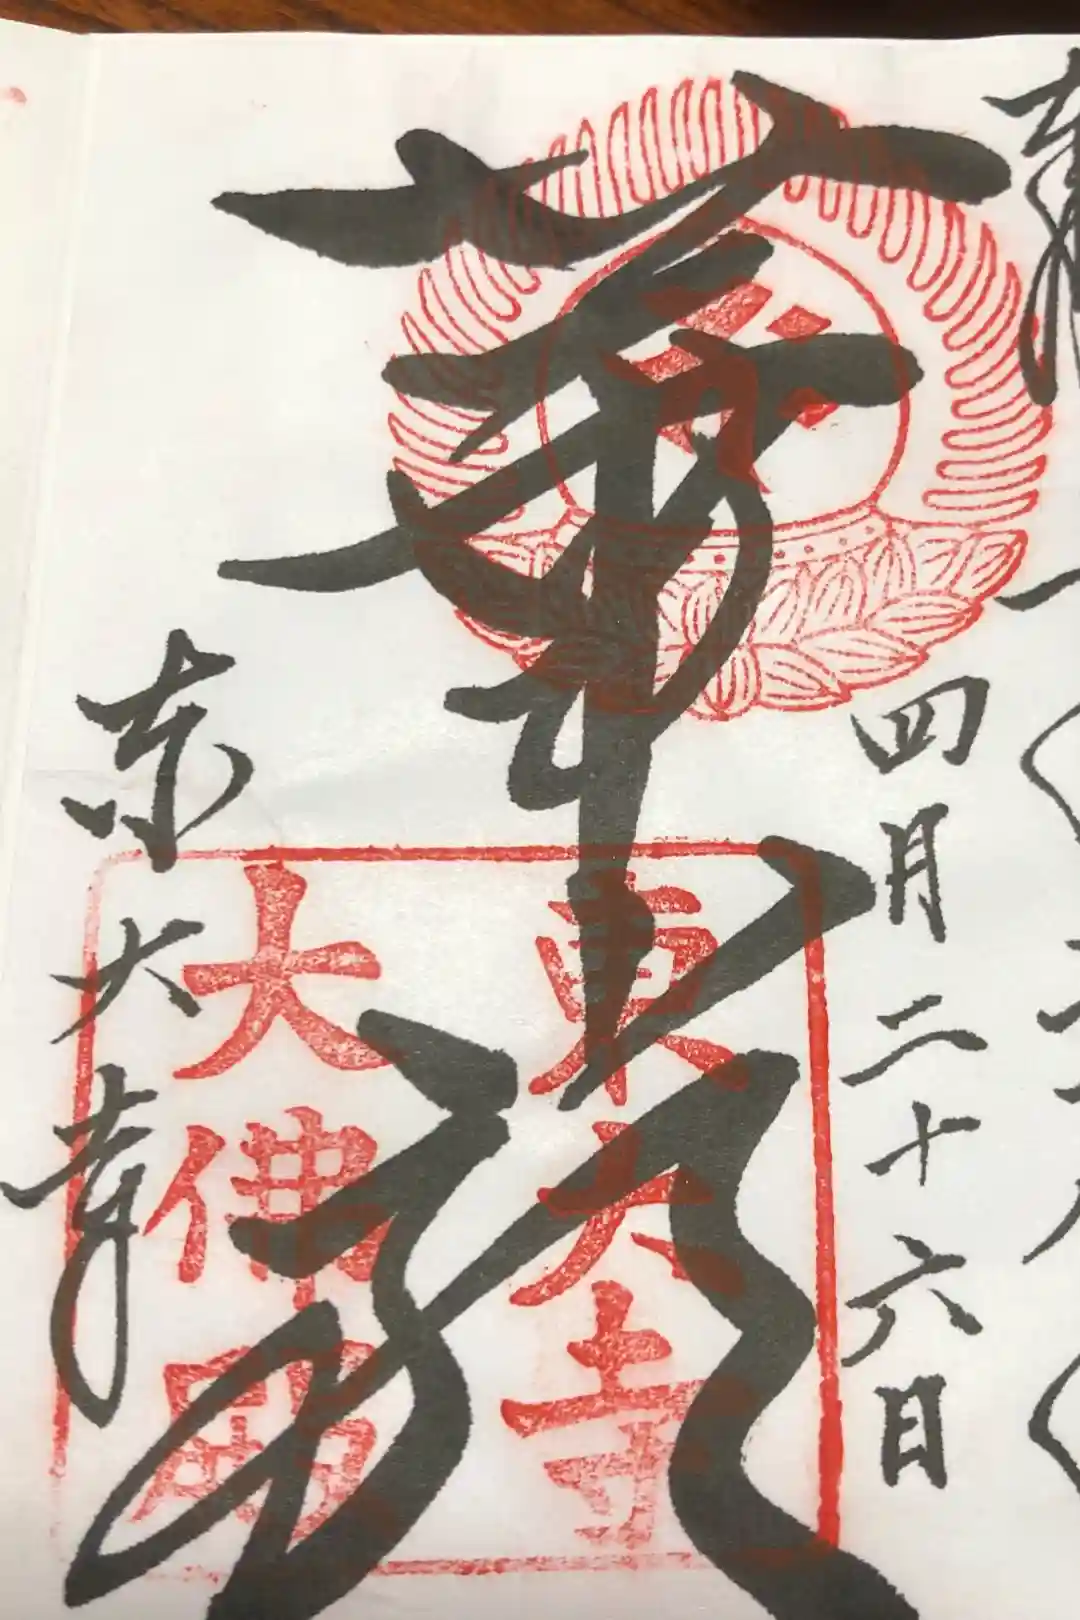 四月二十六日
華厳
東大寺
大佛殿
東大寺